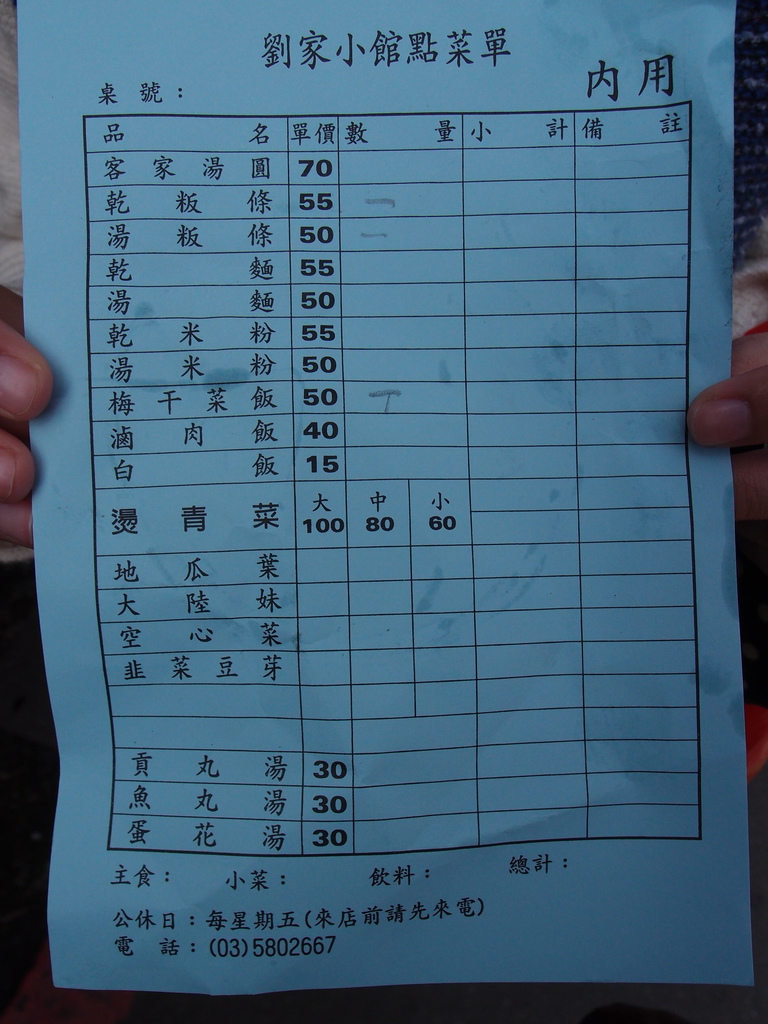 劉家小館點菜單
內用
桌號：
品名 單價 數量 小計 備註
客家湯圓 70
乾粄條 55 一
湯粄條 50 一
乾麵 55
湯麵 50
乾米粉 55
湯米粉 50
梅干菜飯 50 丅
滷肉飯 40
白飯 15
燙青菜 大100 中80 小60
地瓜葉
大陸妹
空心菜
韭菜豆芽
貢丸湯 30
魚丸湯 30
蛋花湯 30
主食： 小菜： 飲料： 總計：
公休日：每星期五(來店前請先來電)
電話：(03)5802667